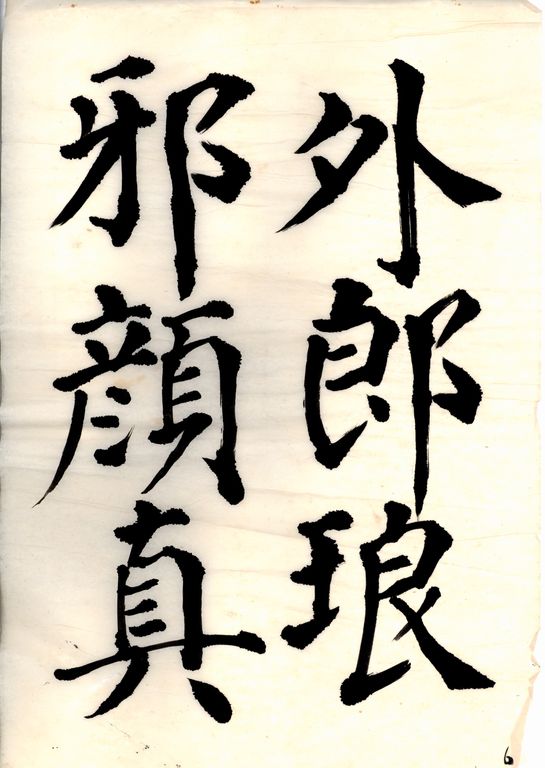 外郎琅
邪顔真
6